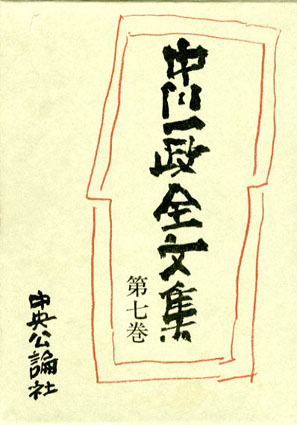 中川一政全文集
第七巻
中央公論社